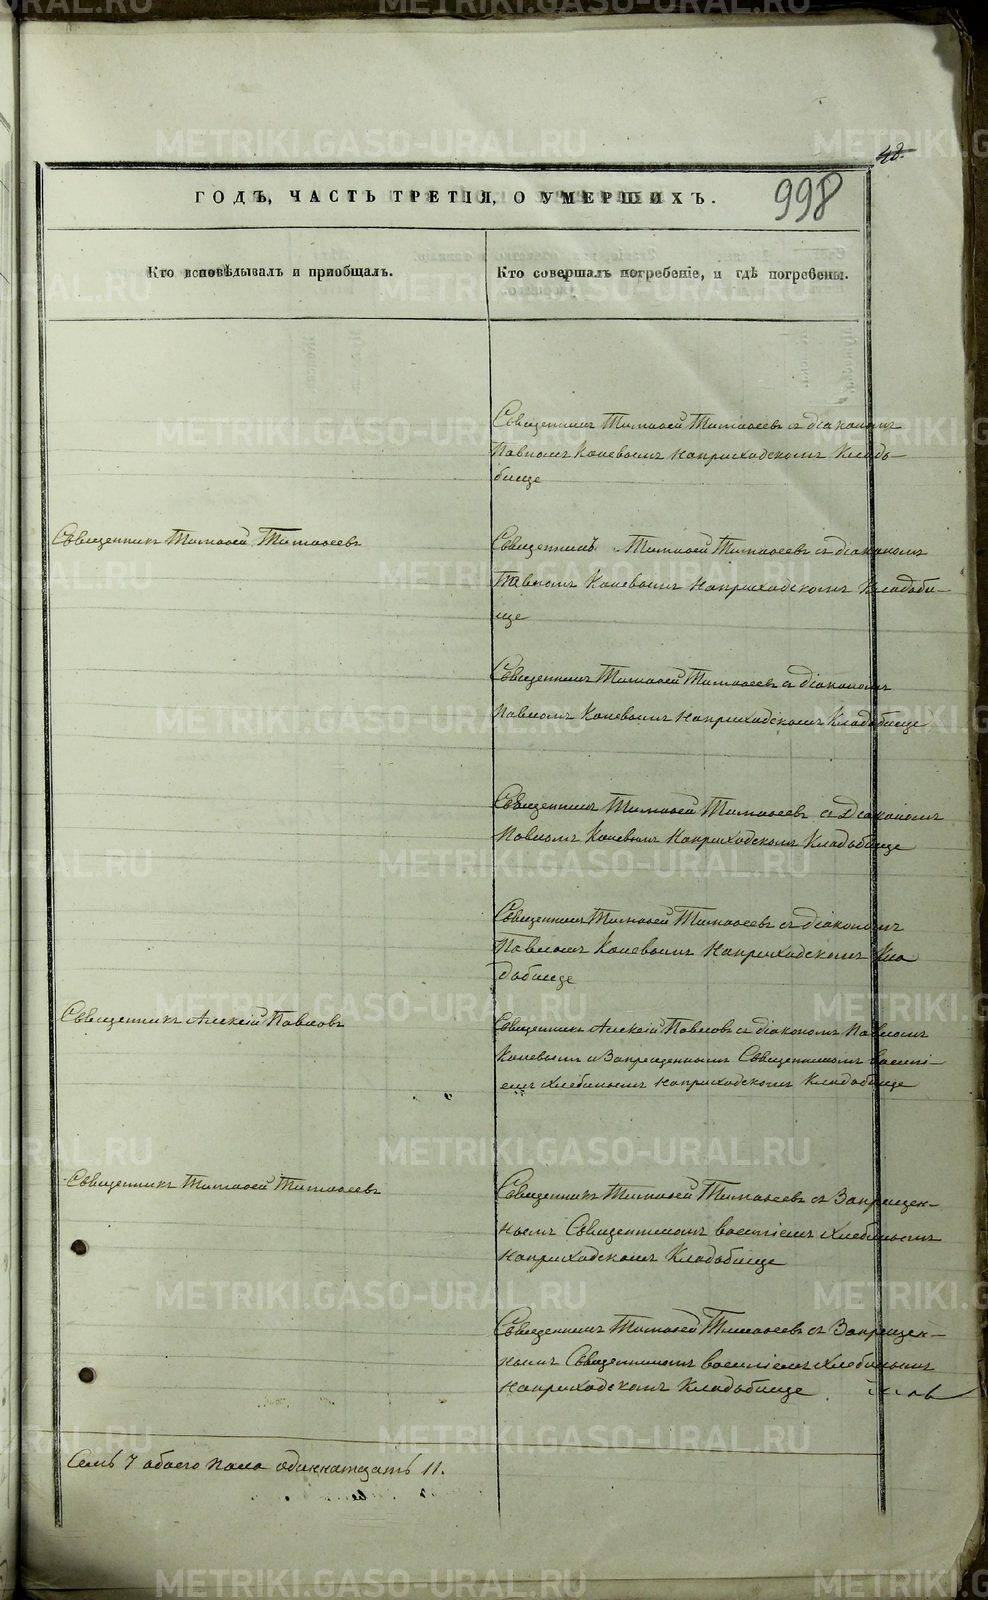 48.
998
ГОДЪ, ЧАСТЬ ТРЕТІЯ, О УМЕРШИХЪ.
Кто исповѣдывалъ и приобщалъ.
Кто совершалъ погребеніе, и гдѣ погребены.
Священникъ Тимофей Тимофеевъ съ діакономъ
Павломъ Каневымъ на приходскомъ Клад-
бище
Священникъ Тимофей Тимофеевъ
Священникъ Тимофей Тимофеевъ съ діакономъ
Павломъ Каневымъ на приходскомъ Кладби-
ще
Священникъ Тимофей Тимофеевъ съ діакономъ
Павломъ Каневымъ на приходскомъ Кладбище
Священникъ Тимофей Тимофеевъ съ Діакономъ
Павломъ Каневымъ на приходскомъ Кладбище
Священникъ Тимофей Тимофеевъ съ діакономъ
Павломъ Каневымъ на приходскомъ Кла
дбище
Священникъ Алексій Павловъ
Священникъ Алексій Павловъ съ діакономъ Павломъ
Каневымъ и Запрещеннымъ Священникомъ Васили-
емъ Хлебинымъ на приходскомъ Кладбище
Священникъ Тимофей Тимофеевъ
Священникъ Тимофей Тимофеевъ съ Запрещен-
нымъ Священникомъ Василіемъ Хлебинымъ
на приходскомъ Кладбище
Священникъ Тимофей Тимофеевъ съ Запрещен-
нымъ Священникомъ Василіемъ Хлебинымъ
на приходскомъ Кладбище
Семь 7 обоего пола одиннатцать 11.
METRIKI.GASO-URAL.RU